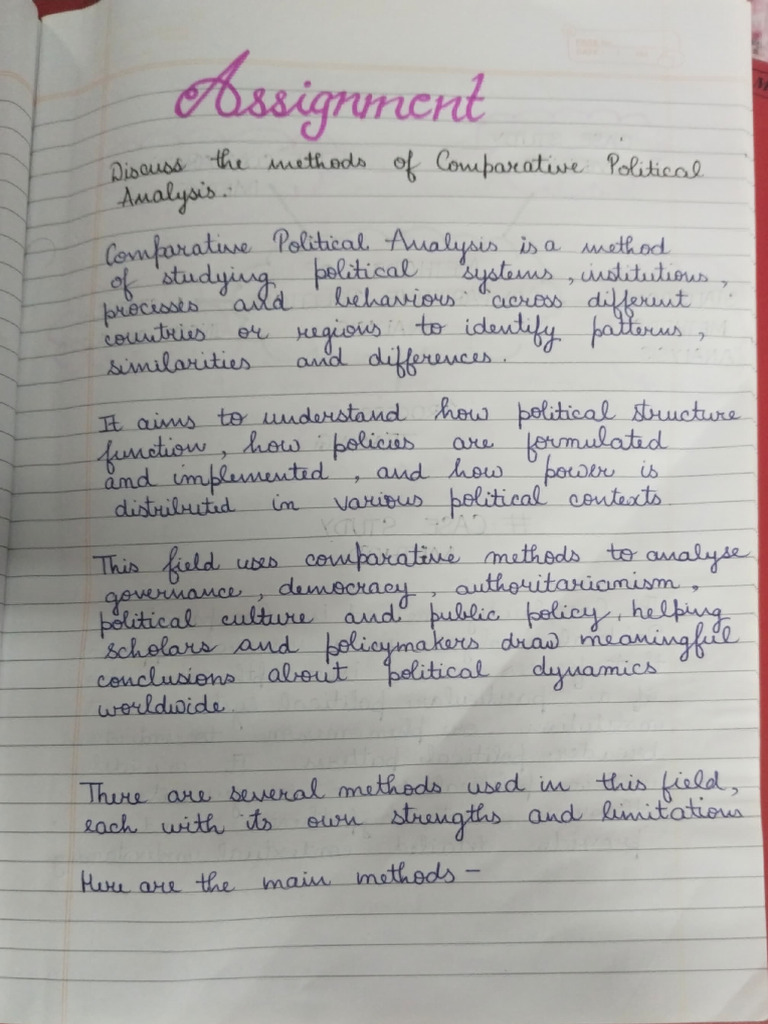 Assignment
Discuss the methods of Comparative Political
Analysis.
Comparative Political Analysis is a method
of studying political systems, institutions,
processes and behaviors across different
countries or regions to identify patterns,
similarities and differences.
It aims to understand how political structure
function, how policies are formulated
and implemented, and how power is
distributed in various political contexts
This field uses comparative methods to analyse
governance, democracy, authoritarianism,
political culture and public policy, helping
scholars and policymakers draw meaningful
conclusions about political dynamics
worldwide.
There are several methods used in this field,
each with its own strengths and limitations
Here are the main methods -
# CASE STUDY